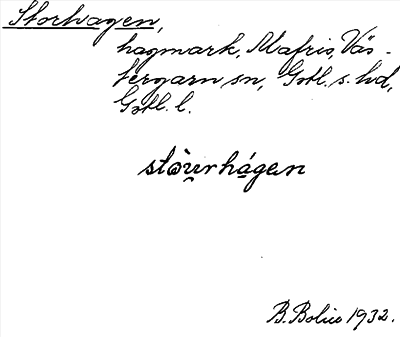 Storhagen,
hagmark, Mafris, Väs-
tergarn sn, Gotl. s. hd,
Gotl. l.
stòu̯rhágen
B. Bolin 1932.